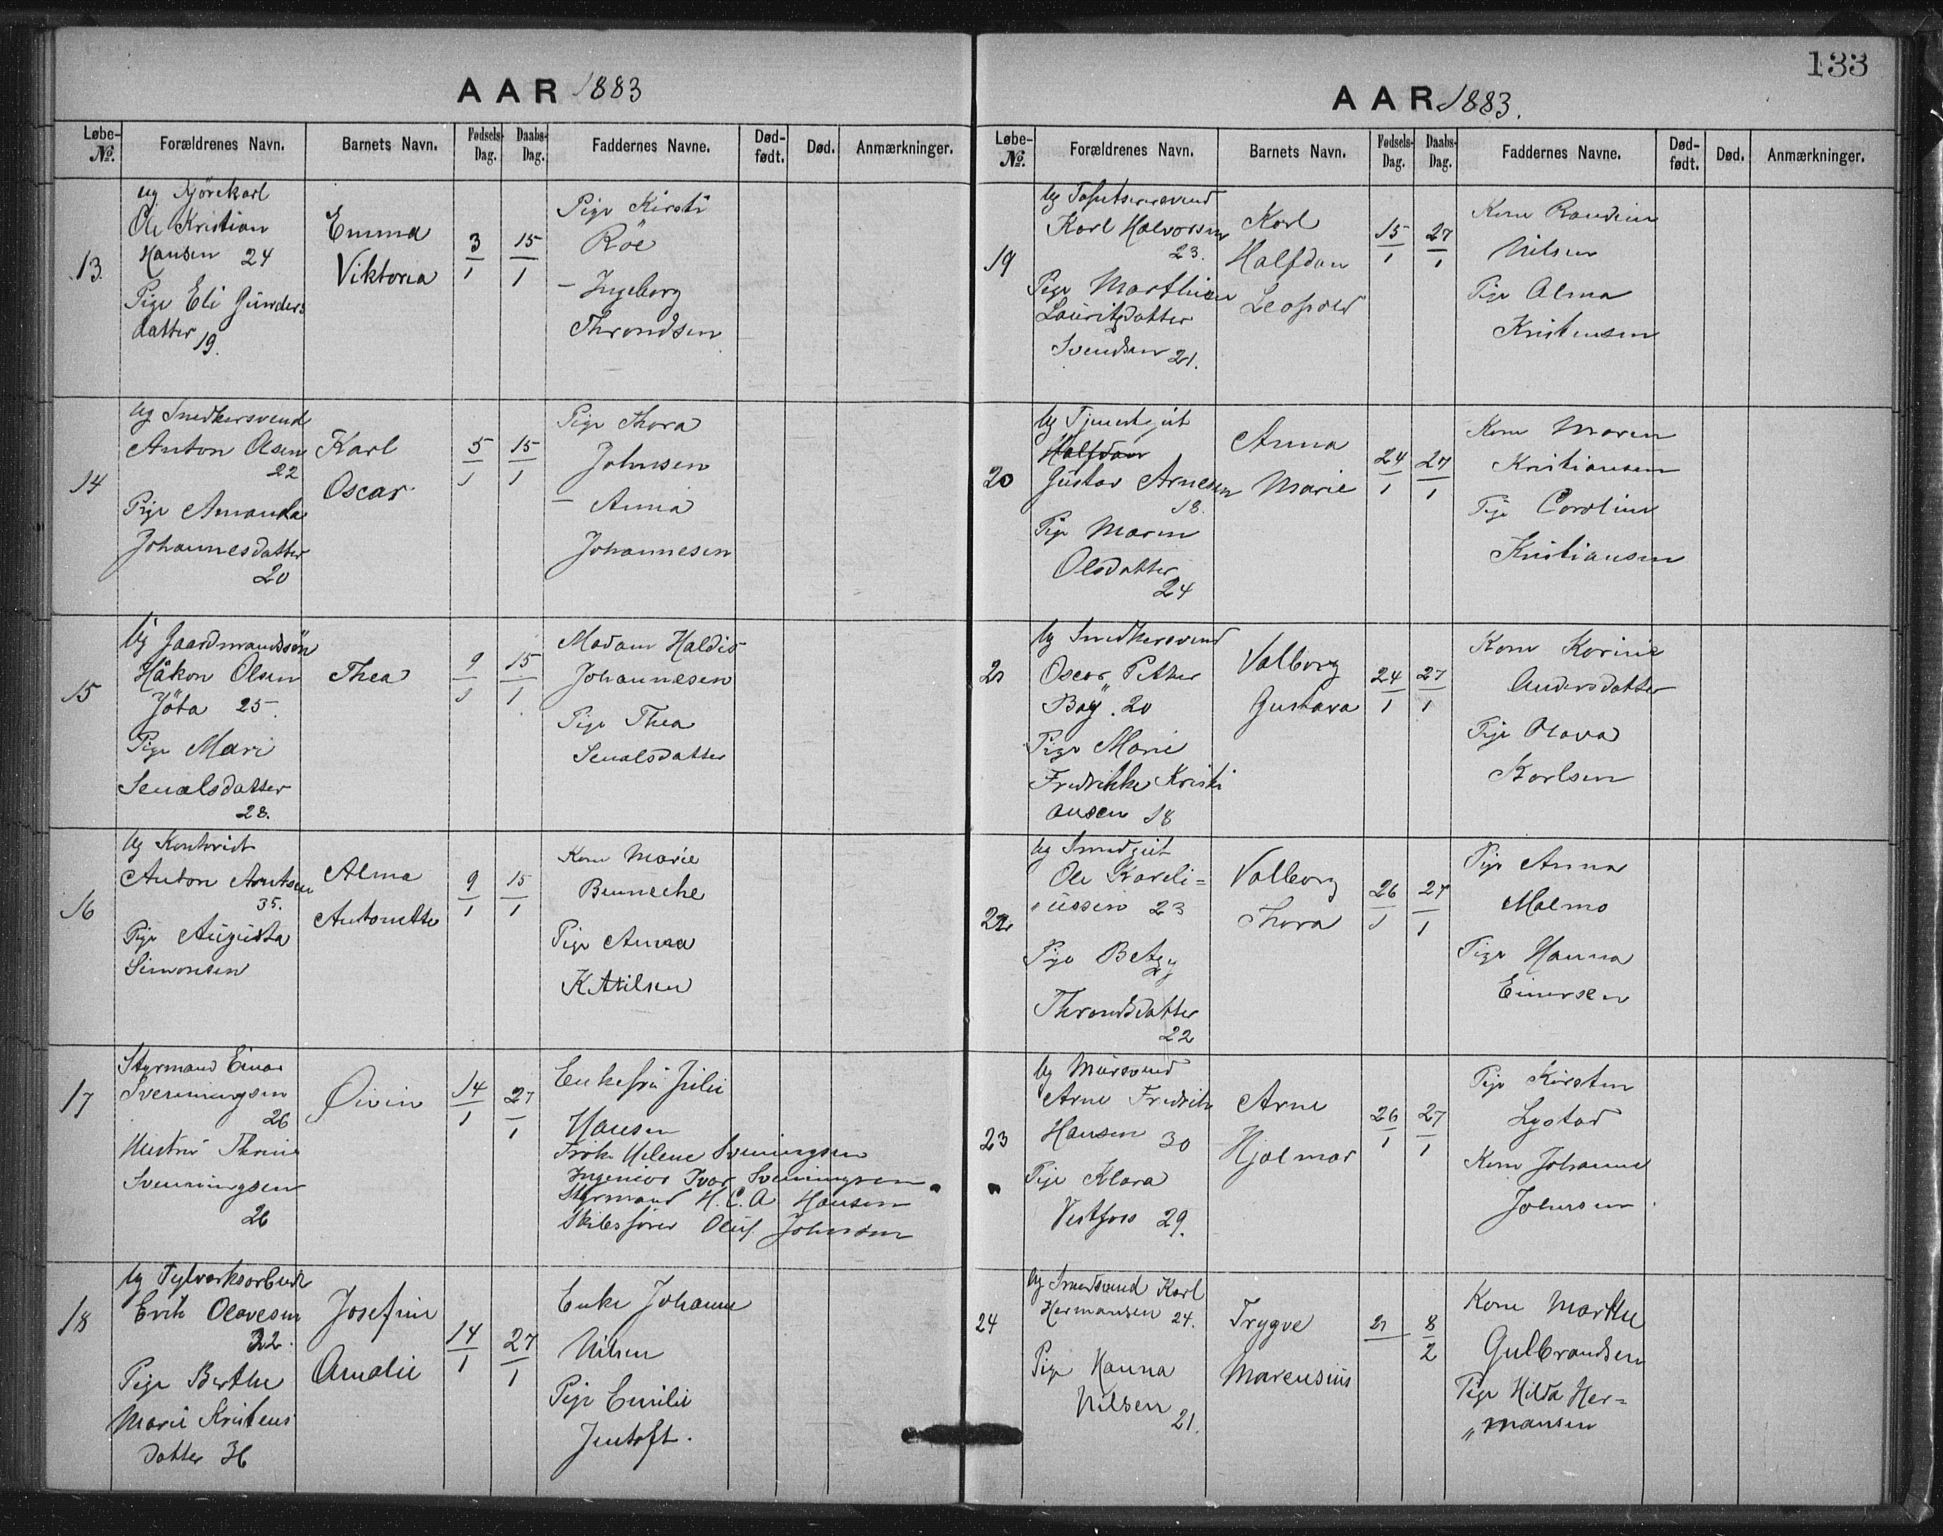 AAR 1883
Løbe-No. Forældrenes Navn. Barnets Navn. Fødsels-Dag. Daabs-Dag. Faddernes Navne. Død-født. Død. Anmærkninger.
13
ug Kjørekarl
Ole Kristian
Hansen 24
Pige Eli Gunders
datter 19.
Emma
Viktoria
3/1
15/1
Pige Kirsti
Röe
— Ingeborg
Throndsen
14
ug Snedkersvend
Anton Olsen
22
Pige Amanda
Johannesdatter
20
Karl
Oscar
5/1
15/1
Pige Thora
Johnsen
— Anna
Johannesen
15
Ug Gaardmandssøn
Håkon Olsen
25
Pige Mari
datter
28.
Thea
9/1
15/1
Madam
Johannesen
Pige Thea
datter
16
Ug
Anton Arntsen
35.
Pige Augusta
Simonsen
Alma
Antonette
9/1
15/1
Kone Marie
Bennecke
Pige Anna
Ketilsen
17
Styrmand Einar
Svenningsen
26
Hustru Thrine
Svenningsen
26
Øivin
14/1
27/1
Enkefru Julie
Hansen
Frøken Helene Svenningsen
Ingeniør Ivar Svenningsen
Styrmand H. C. A Hansen
Skibsfører Oluf Johnsen
18
Ug
Erik Olavesen
32.
Pige Berthe
Marie Kristens
datter 36
Josefine
Amalie
14/1
27/1
Enke Johanne
Nilsen
Pige Emilie
Jentoft.
133
AAR 1883.
Løbe-No. Forældrenes Navn. Barnets Navn. Fødsels-Dag. Daabs-Dag. Faddernes Navne. Død-født. Død. Anmærkninger.
19
Ug Tapetserersvend
Karl Halvorsen
23.
Pige Marthine
Lauritzdatter
Svendsen 21.
Karl
Halfdan
Leopold
15/1
27/1
Kone Randine
Nilsen
Pige Alma
Kristensen
20
Ug Tjenestegut
Halfdan
Gustav Arnesen
18.
Pige Maren
Olsdatter
24
Anna
Marie
24/1
27/1
Kone Maren
Kristiansen
Pige Caroline
Kristiansen
21
Ug Snedkersvend
Oscar Petter
Bay. 20
Pige Marie
Fredrikke Kristi
ansen 18
Valborg
Gustava
24/1
27/1
Kone Karine
Andersdatter
Pige Olava
Karlsen
22
Ug Smedgut
Ole Kareli=
ussen 23
Pige Betzy
Throndsdatter
22
Valborg
Thora
26/1
27/1
Pige Anna
Malmo
Pige Hanna
Einersen
23
Ug Mursvend
Arne Fredrik
Hansen 30
Pige Klara
Vestfoss 29.
Arne
Hjalmar
26/1
27/1
Pige Kirsten
Lystad
Kone Johanne
Johnsen
24
Ug Smedsvend Karl
Hermansen 24.
Pige Hanna
Nilsen
21.
Trygve
Marensius
21
8/2
Kone Marthe
Gulbrandsen
Pige Hilda Her=
„ mansen